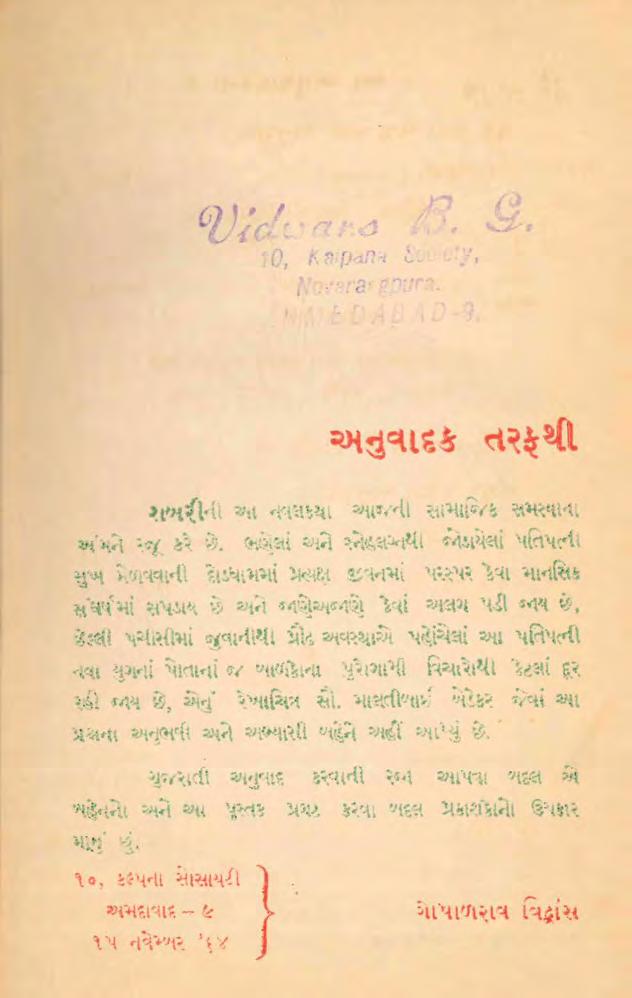 Vidwans B. G.
10, Kalpana Society,
Navarangpura.
AHMEDABAD-9.
અનુવાદક તરફથી
શબરીની આ નવલકથા આજની સામાજિક સમસ્યાના
અંગને રજૂ કરે છે. ભણેલાં અને સ્નેહલગ્નથી જોડાયેલાં પતિપત્ની
સુખ મેળવવાની દોડધામમાં પ્રત્યક્ષ જીવનમાં પરસ્પર કેવા માનસિક
સંઘર્ષમાં સપડાય છે અને જાણેઅજાણે કેવાં અલગ પડી જાય છે,
છેલ્લી પચીસીમાં જુવાનીથી પ્રૌઢ અવસ્થાએ પહોંચેલાં આ પતિપત્ની
નવા યુગનાં પોતાનાં જ બાળકોના પુરોગામી વિચારોથી કેટલાં દૂર
રહી જાય છે, એનું રેખાચિત્ર સૌ. માલતીબાઈ બેડેકર જેવાં આ
પ્રશ્નના અનુભવી અને અભ્યાસી બહેને અહીં આપ્યું છે.
ગુજરાતી અનુવાદ કરવાની રજા આપવા બદલ એ
બહેનનો અને આ પુસ્તક પ્રગટ કરવા બદલ પ્રકાશકોનો ઉપકાર
માનું છું.
૧૦, કલ્પના સોસાયટી
અમદાવાદ – ૯
૧૫ નવેમ્બર '૬૪
ગોપાળરાવ વિદ્વાંસ